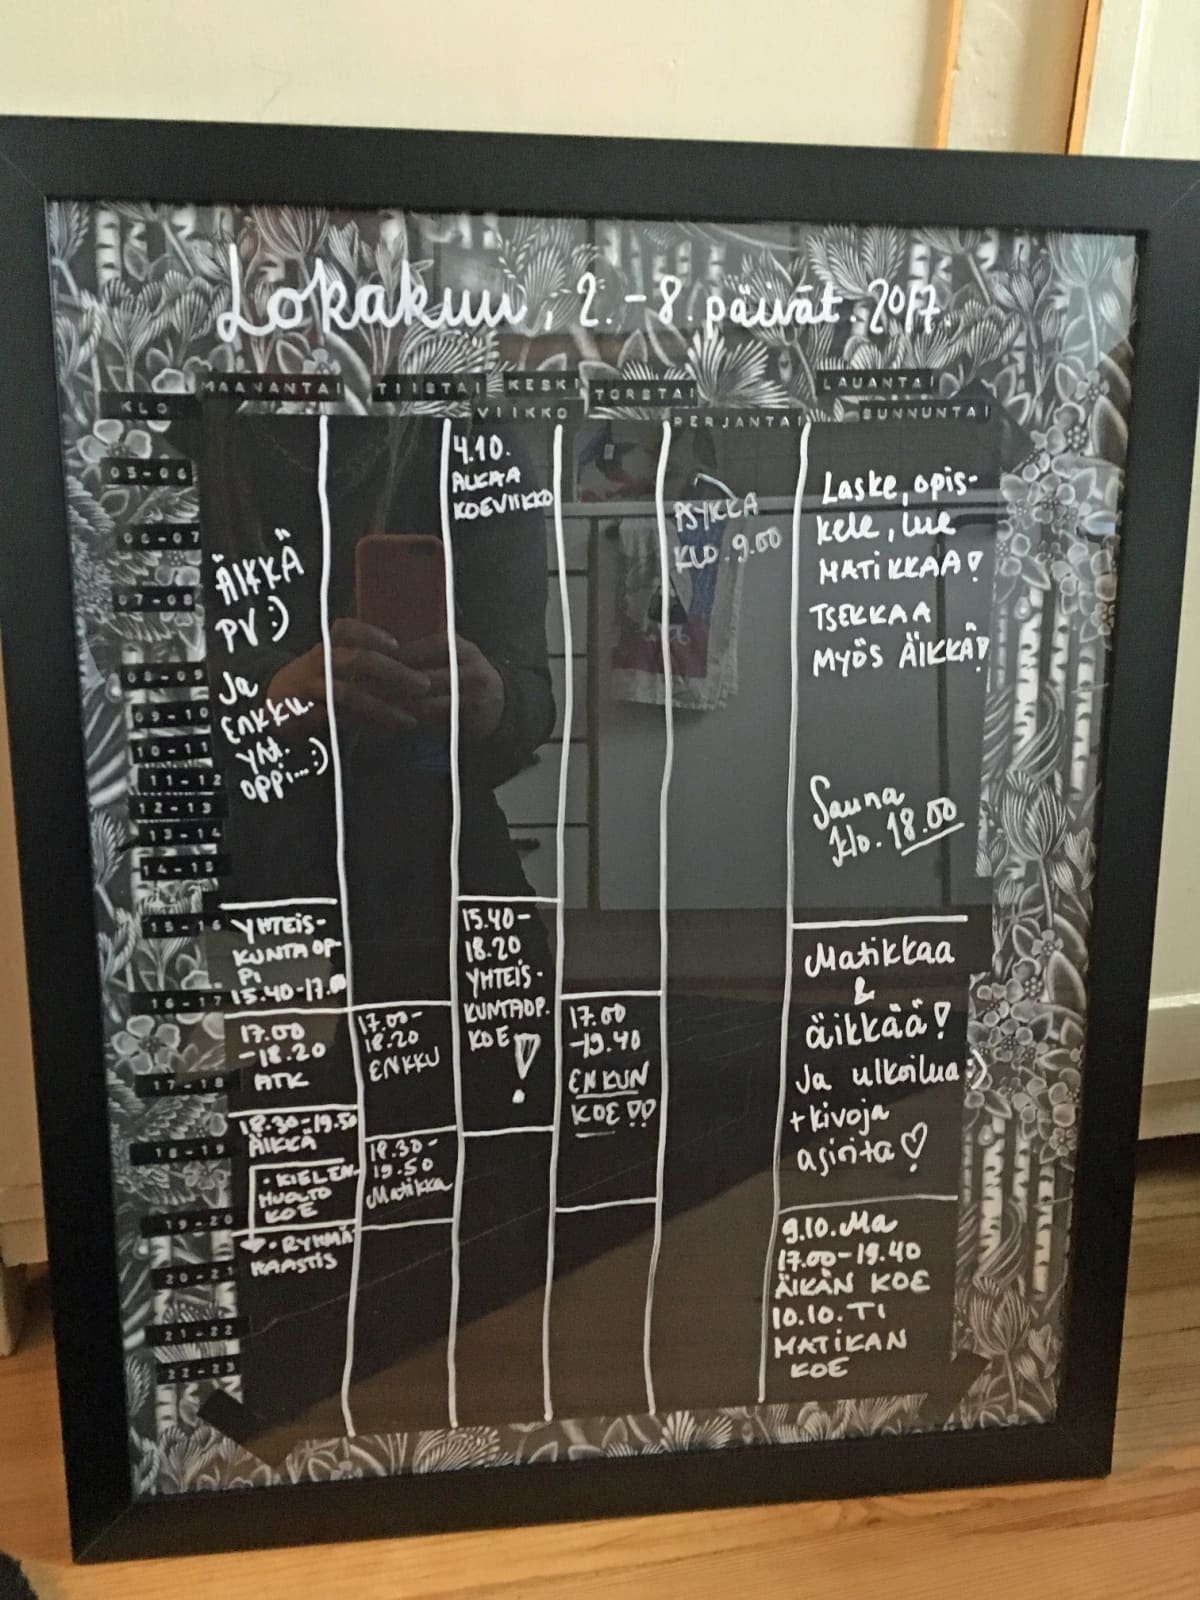 Lokakuu, 2.-8. päivät. 2017.
MAANANTAI
TIISTAI
KESKI
VIIKKO
TORSTAI
PERJANTAI
LAUANTAI
SUNNUNTAI
KLO
05-06
06-07
07-08
08-09
09-10
10-11
11-12
12-13
13-14
14-15
15-16
16-17
17-18
18-19
19-20
20-21
21-22
22-23
ÄIKKÄ
PV :)
Ja
ENKKU.
YHT.
OPPI...:)
YHTEIS-
KUNTAOP
PI
15.40-17.
17.00
-18.20
ATK
18.30-19.50
ÄIKKÄ
• KIELEN-
HUOLTO
KOE
• RYHMÄ
HAASTIS
17.00-
18.20
ENKKU
18.30-
19.50
Matikka
4.10.
ALKAA
KOEVIIKKO
15.40-
18.20
YHTEIS-
KUNTAOP.
KOE
!
17.00
-19.40
ENKUN
KOE!!
PSYKKA
KLO. 9.00
Laske, opis-
kele, lue
MATIKKAA!
TSEKKAA
MYÖS ÄIKKÄ!
Sauna
klo. 18.00
Matikkaa
&
äikkää!
Ja ulkoilua :)
+kivoja
asioita ♡
9.10. Ma
17.00-19.40
ÄIKÄN KOE
10.10. TI
MATIKAN
KOE